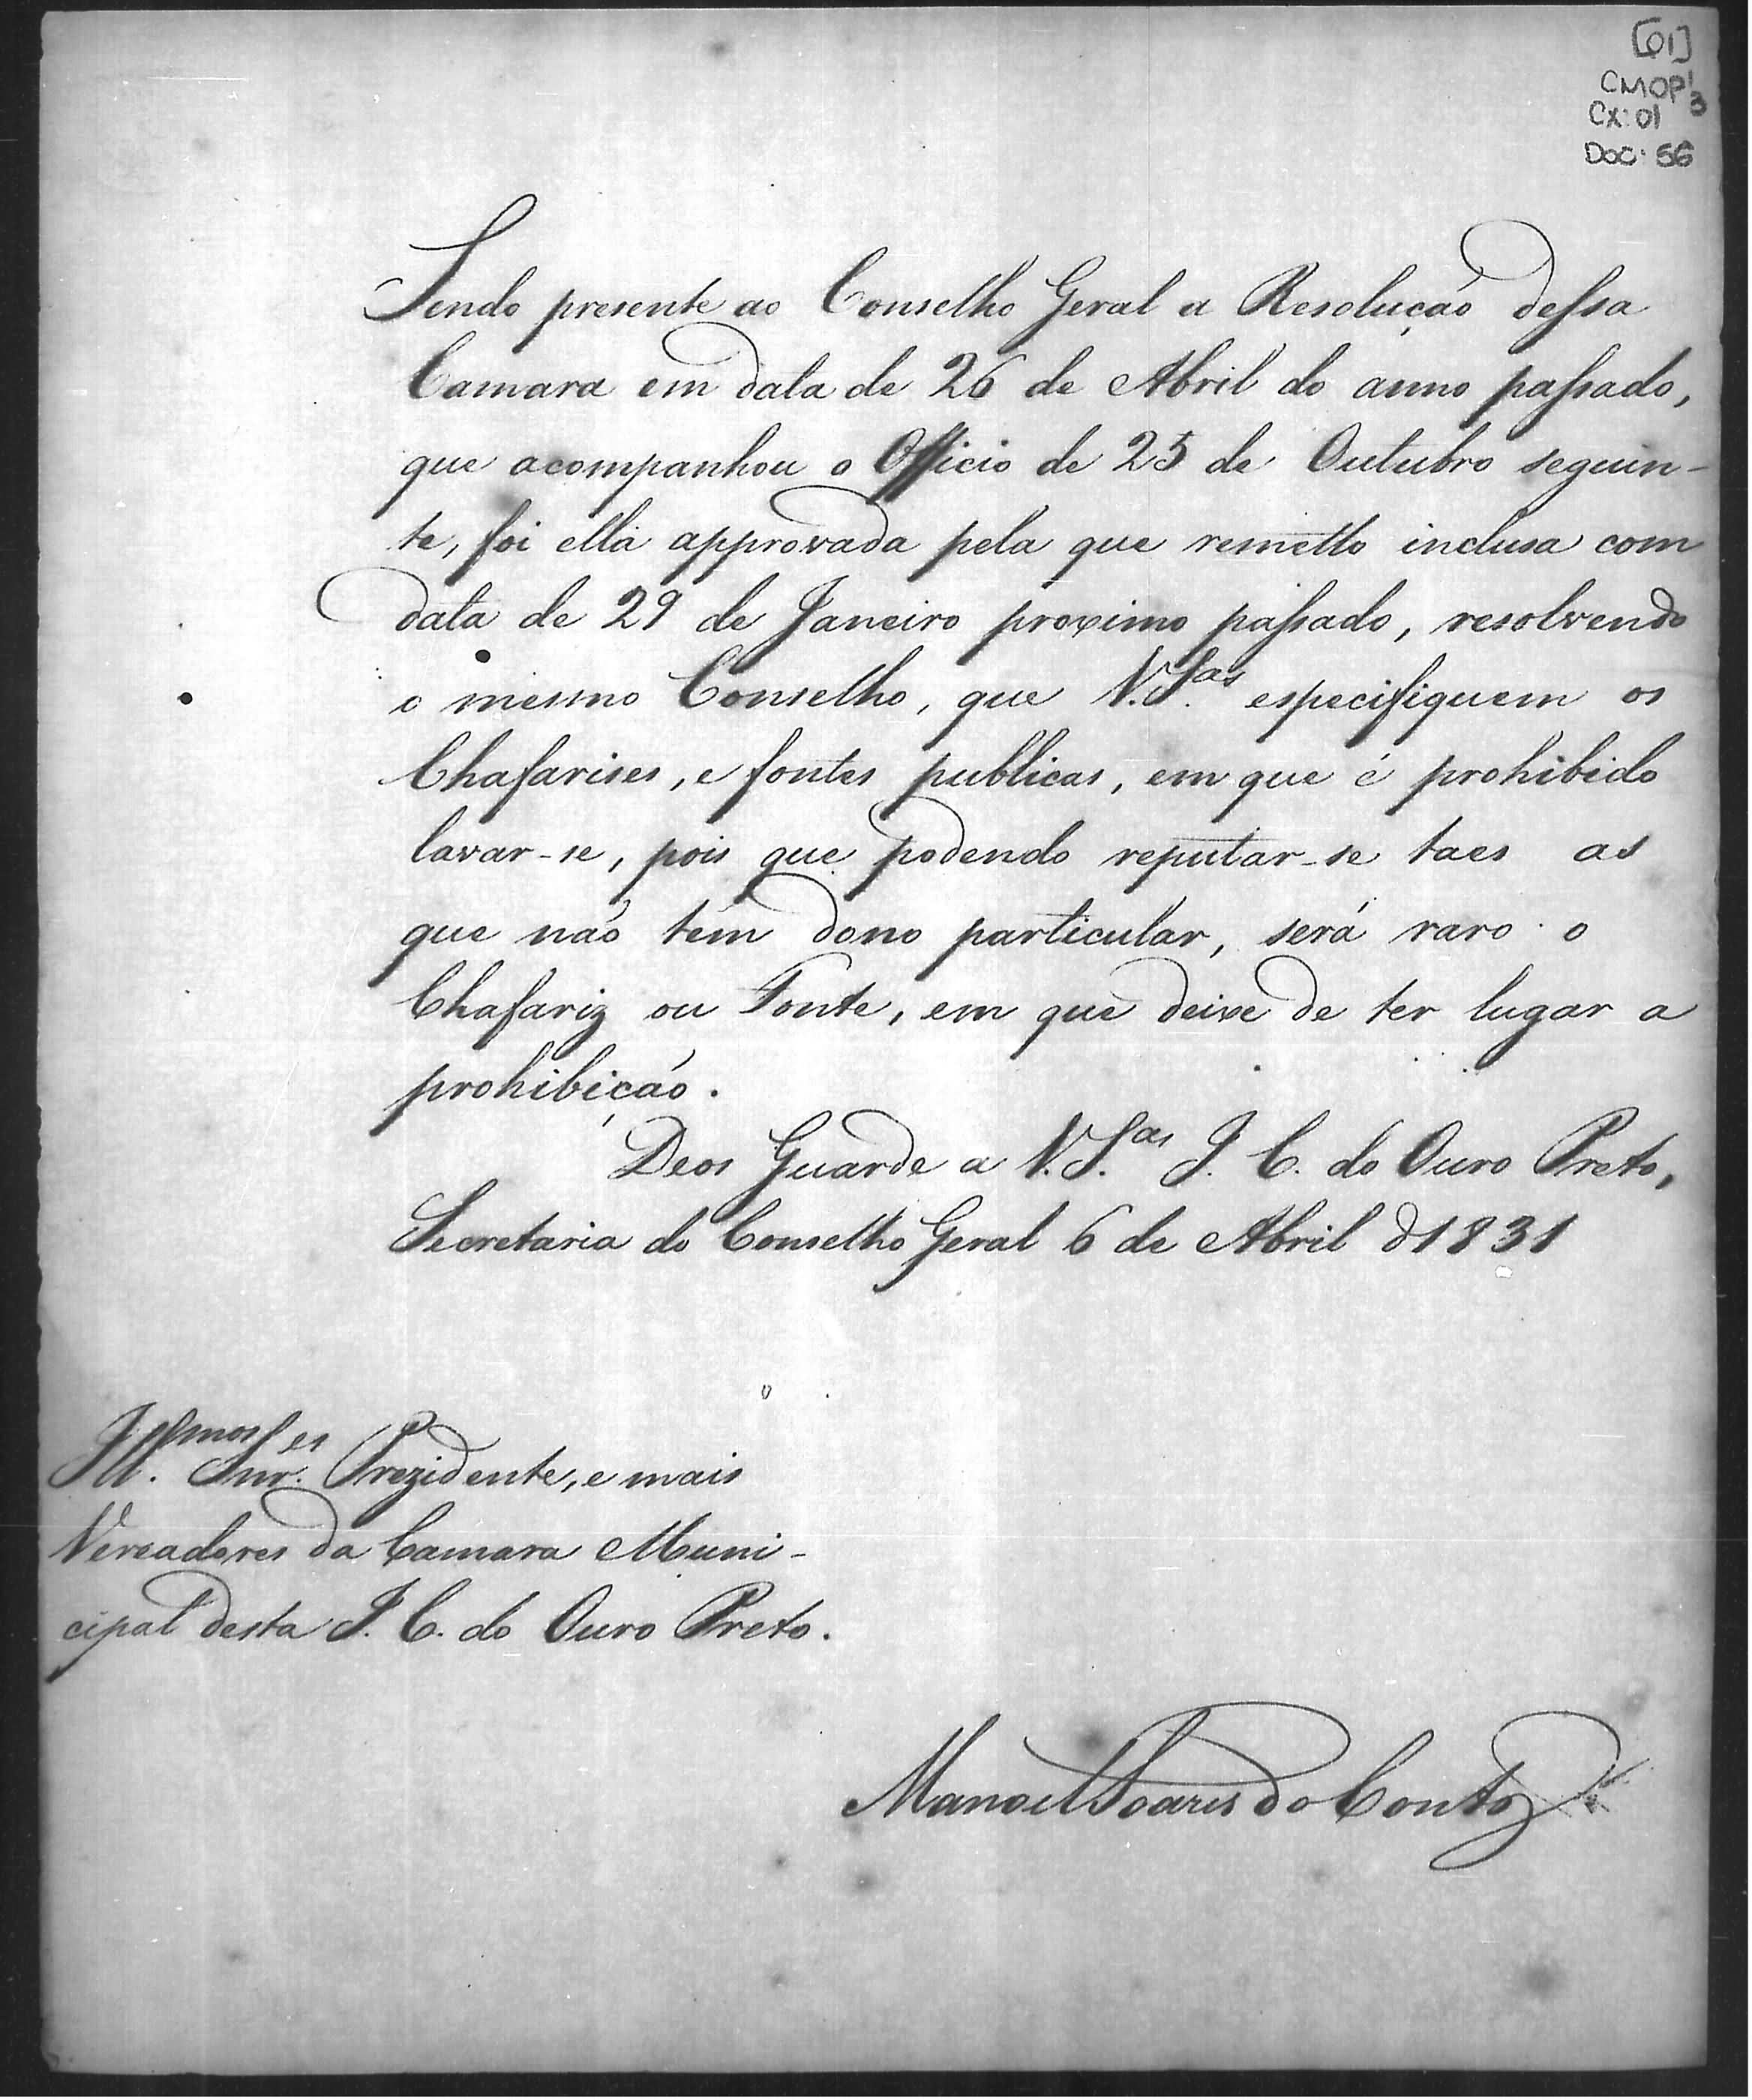 [01]
CMOP 1/3
Cx: 01
Doc: 56
Sendo presente ao Conselho Geral a Resolução dessa
Camara em data de 26 de Abril do anno passado,
que acompanhou o Officio de 25 de Outubro seguin-
te, foi ella approvada pela que remetto inclusa com
data de 29 de Janeiro proximo passado, resolvendo
o mesmo Conselho, que V. S.as especifiquem os
Chafarises, e fontes publicas, em que é prohibido
lavar-se, pois que podendo reputar-se taes as
que não têm dono particular, será raro o
Chafariz ou Fonte, em que deixe de ter lugar a
prohibição.
Deos Guarde a V. S.as I. C. do Ouro Preto,
Secretaria do Conselho Geral 6 de Abril d 1831
Ill.mos Snr.es Prezidente, e mais
Vereadores da Camara Muni-
cipal desta I. C. do Ouro Preto.
Manoel Soares do Couto